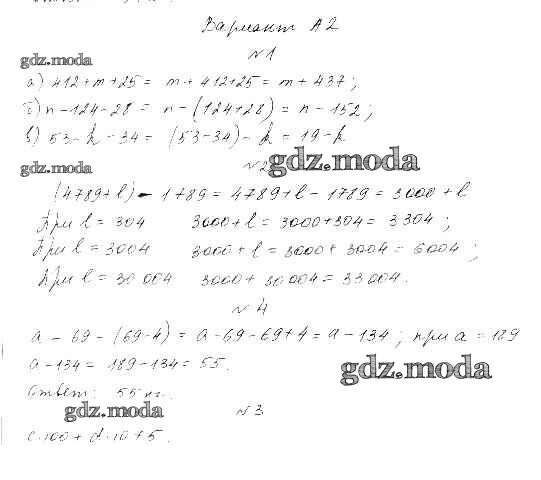 Вариант А2
№1
gdz.moda
а) 412+m+25= m+412+25= m+437;
б) n-124-28= n-(124+28)= n-152;
в) 53-k-34= (53-34)-k=19-k
gdz.moda
№2
gdz.moda
(4789+l)-1789=4789+l-1789=3000+l
При l=304 3000+l=3000+304=3304;
При l=3004 3000+l=3000+3004=6004;
При l=30 004 3000+30 004=33 004.
№4
a-69-(69-4)=a-69-69+4=a-134; при a=189
a-134=189-134=55.
gdz.moda
Ответ: 55
gdz.moda
№3
c·100+d·10+5.